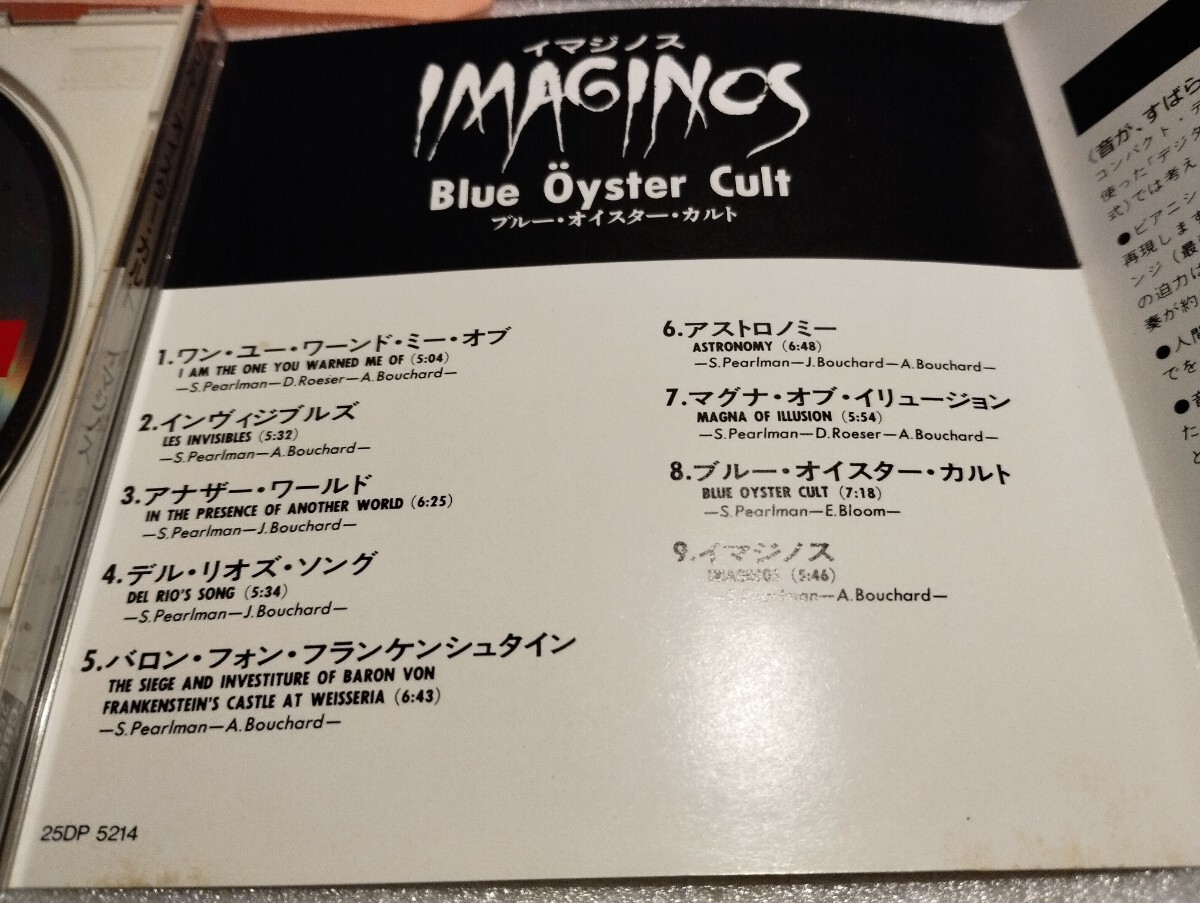 イマジノス
IMAGINOS
Blue Öyster Cult
ブルー・オイスター・カルト
1.ワン・ユー・ワーンド・ミー・オブ
I AM THE ONE YOU WARNED ME OF (5:04)
—S.Pearlman—D.Roeser—A.Bouchard—
2.インヴィジブルズ
LES INVISIBLES (5:32)
—S.Pearlman—A.Bouchard—
3.アナザー・ワールド
IN THE PRESENCE OF ANOTHER WORLD (6:25)
—S.Pearlman—J.Bouchard—
4.デル・リオズ・ソング
DEL RIO'S SONG (5:34)
—S.Pearlman—J.Bouchard—
5.バロン・フォン・フランケンシュタイン
THE SIEGE AND INVESTITURE OF BARON VON
FRANKENSTEIN'S CASTLE AT WEISSERIA (6:43)
—S.Pearlman—A.Bouchard—
25DP 5214
6.アストロノミー
ASTRONOMY (6:48)
—S.Pearlman—J.Bouchard—A.Bouchard—
7.マグナ・オブ・イリュージョン
MAGNA OF ILLUSION (5:54)
—S.Pearlman—D.Roeser—A.Bouchard—
8.ブルー・オイスター・カルト
BLUE OYSTER CULT (7:18)
—S.Pearlman—E.Bloom—
9.イマジノス
IMAGINOS (5:46)
—S.Pearlman—A.Bouchard—
《音が、すばら
コンパクト・デ
使った「デジタ
式)では考え
●ピアニシ
再現します
ンジ(最
の迫力は
奏が約
●人間
でを
●音
た
と